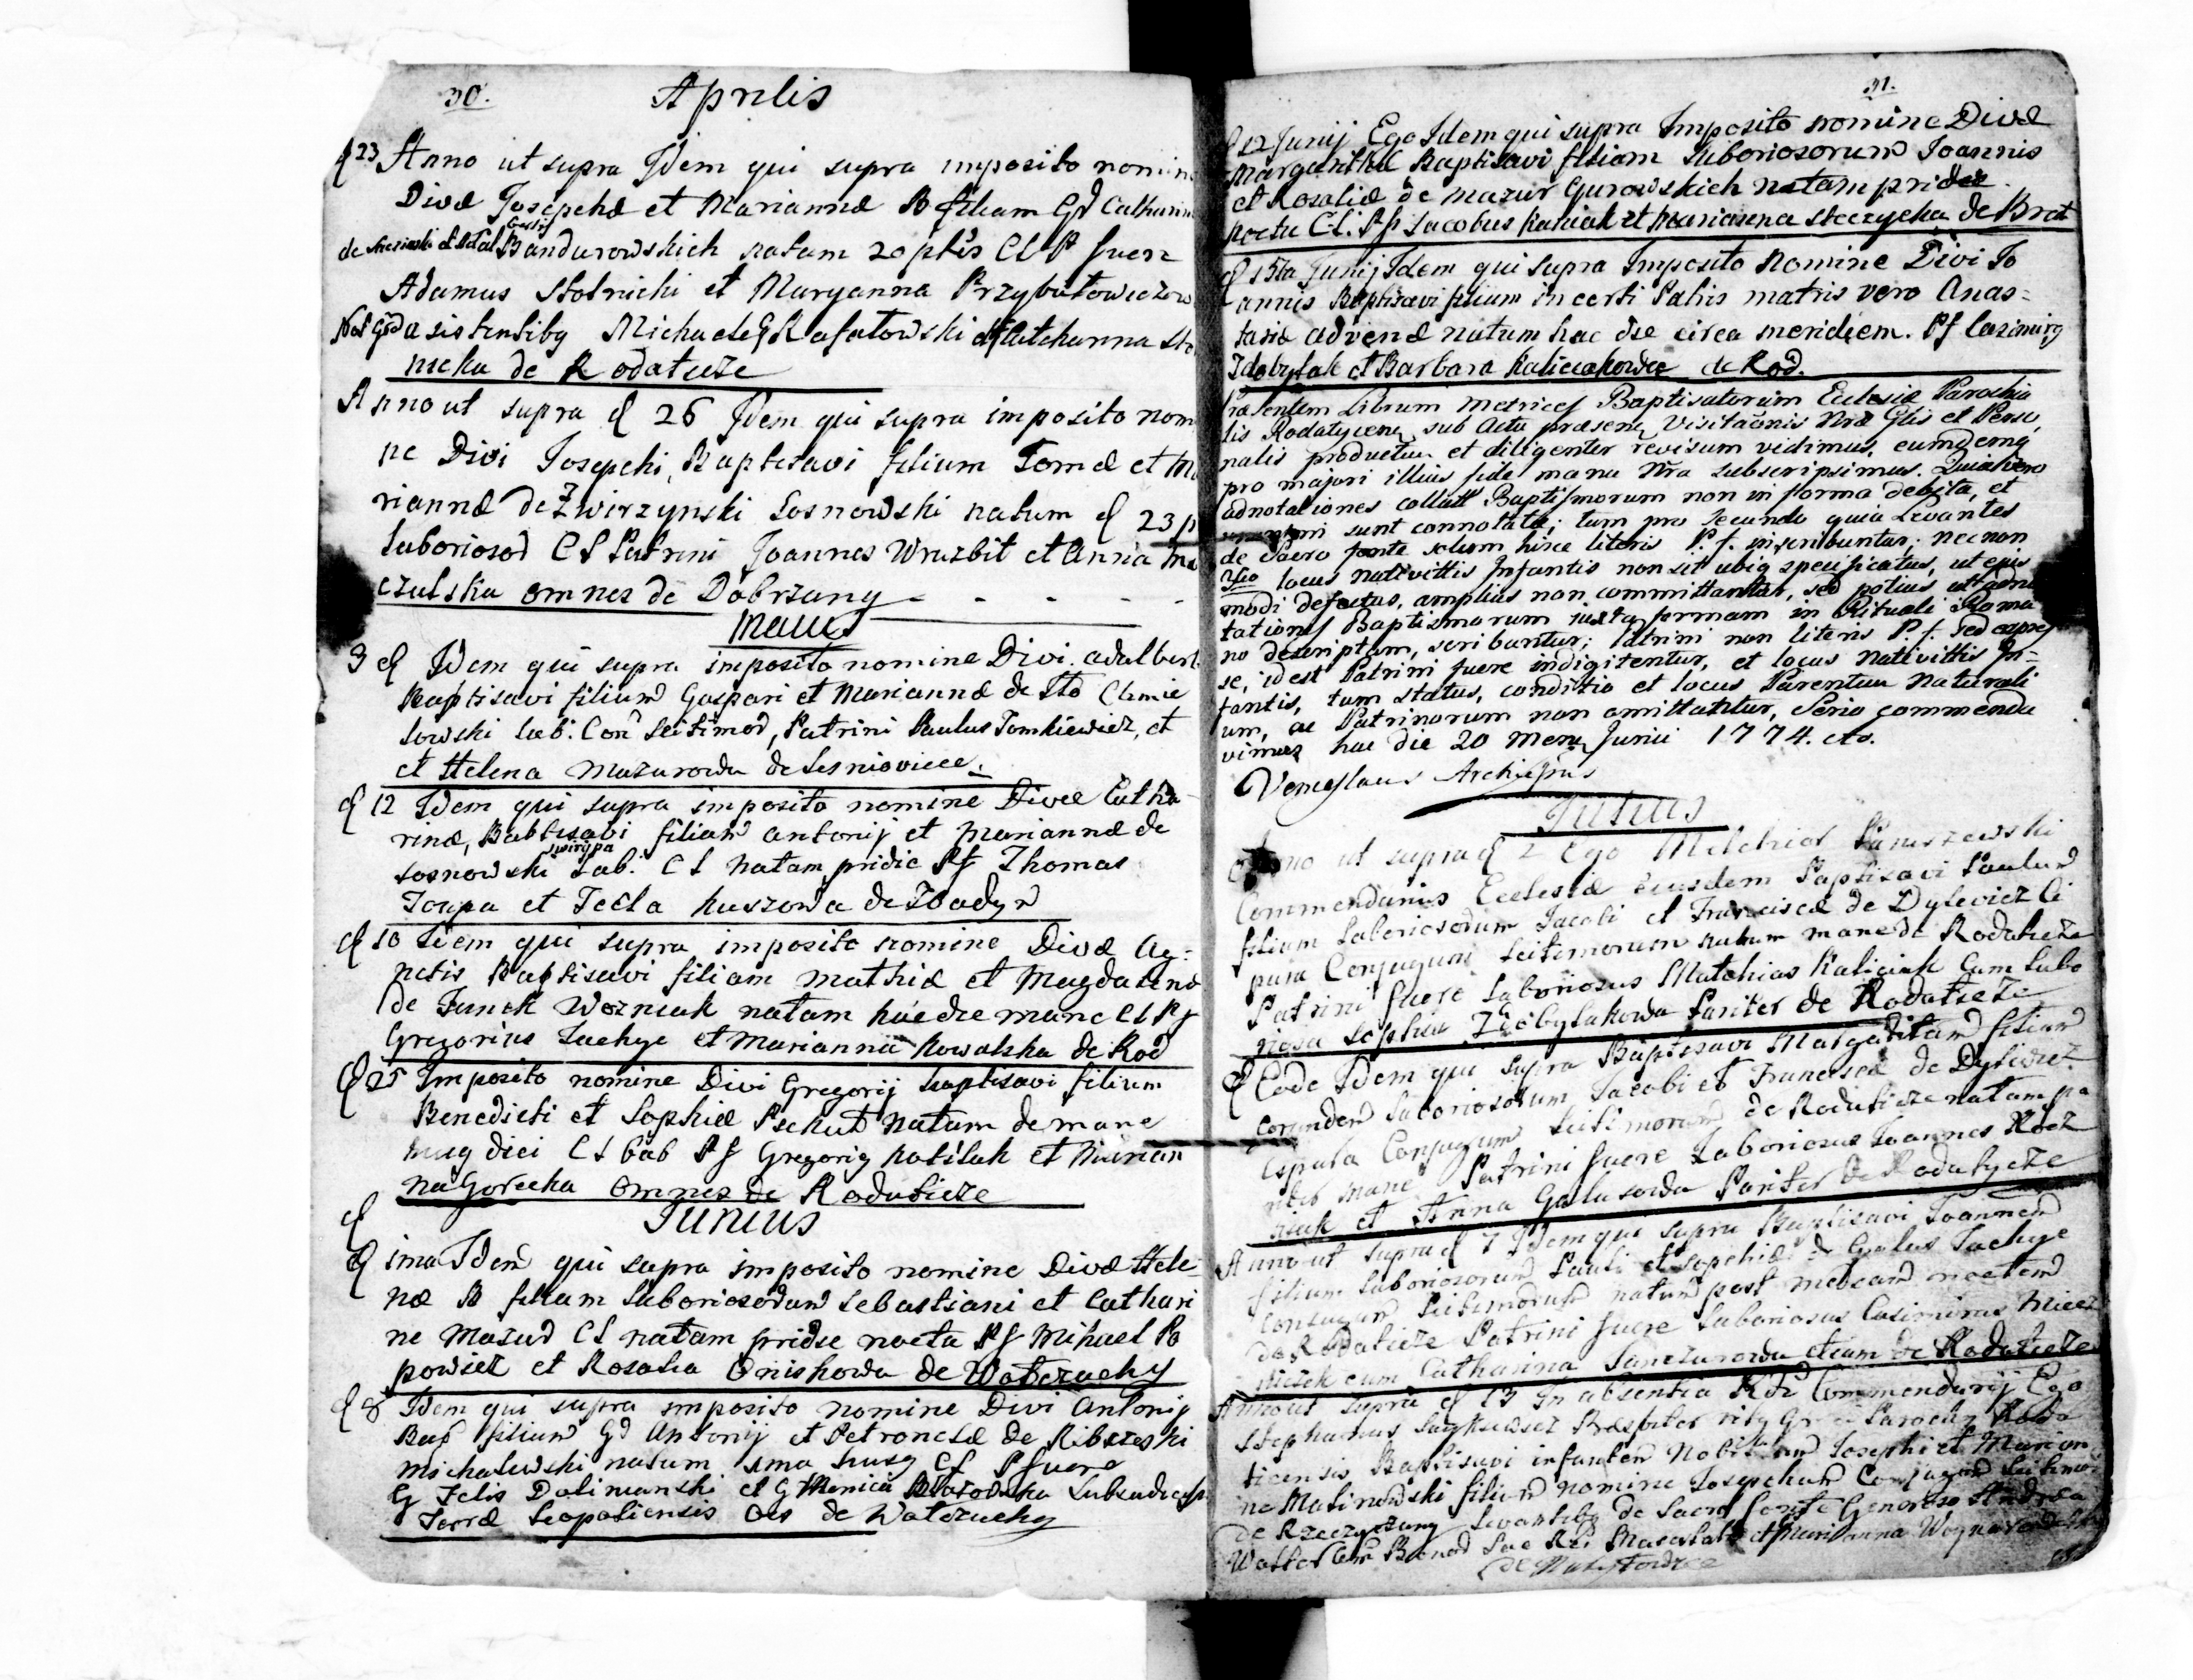 30.
Aprilis
23 Anno ut supra Idem qui supra imposito nomin
Divæ Josephæ et Mariannæ B filiam Gd Catharin
Bandurowskich natam 20 ptis CLP fuere
Adamus Stolnicki et Maryanna Przybutowiczow
asistentibq Michaele Rafatowski Catcharina Sto
nicka de Rodaticze
Anno ut supra d 26 Idem qui supra imposito nom
ne Divi Josephi, Baptisavi filium Tomæ et Ma
riannæ de Zwirzynski Sosnowski natum d 23 p
laboriosor CL Patrini Joannes Wruzbit et Anna Ma
czulska omnes de Dobrzany
Maius
3 d Idem qui supra imposito nomine Divi Adalbert
Baptisavi filium Gaspari et Mariannæ de Sto Chmie
lowski lab: Con Leitimor, Patrini Paulus Tomkiewicz, et
et Helena Mazurowa de Lesniovice.
d 12 Idem qui supra imposito nomine Divæ Catha
rinæ, Babtisavi filiam Antonij et Mariannæ de
swirypa
Sosnowski Lab: CL Natam pridie Pf Thomas
Joupa et Tecla Kuszowa de Zbadyn
d 10 Idem qui supra imposito nomine Divæ Ag-
netis Baptisavi filiam Mathiæ et Magdalenæ
de Junak Wozniak natam hac die mane CL Pf
Gregorius Juchye et Marianna Kowalska de Rod
d 25 Imposito nomine Divi Gregorij baptisavi filium
Benedicti et Sophiæ Psekut Natum de mane
huig diei CL Lab Pf Gregorig Kolilak et Marian
na Gorecka Omnes de Rodaticze
d
Junius
d ima Idem qui supra imposito nomine Divæ Hele
næ B filiam Laboriosorum Sebastiani et Cathari
ne Mazur CL natam pridie nocta Pf Mihael Po
powicz et Rosalia Oniskowa de Wolczuchy
d 8 Idem qui supra imposito nomine Divi Antonij
Bap filium Gd Antonij et Petronelæ de Ribczeski
Michalewski natum ima husg CL Pfuere
G Felis Dolimanski et G Monica Subiudicis
Terræ Leopoliensis oes de Wolczuchy
31.
d 12 Junij Ego Idem qui supra Imposito nomine Divæ
Margarithæ Baptisavi filiam Laboriosorum Joannis
et Rosaliæ de Mazur Gurowskich natam pridie
noctu CL. Pf Jacobus Kaniak et Marianna Steczycka de Brat
d 15ta Junij Idem qui supra Imposito Nomine Divi Jo
annis Baptisavi filium incerti Patris matris vero Anas=
tasiæ advenæ natum hac die circa meridiem. Pf Casimirg
Zdobylak et Barbara Kaliciakowa de Rod.
Præsentem Librum Metrices Baptisatorum Eclesiæ Parochia
lis Rodatycen, sub Actu præsens Visitaonis Nræ Glis et Perso,
nalis productum et diligenter revisum vidimus, eumdemq
pro majori illius fide manu Nra subscripsimus. Quia vero
adnotationes collatt Baptismorum non in forma debita, et
sunt connotatæ; tum pro secundo quia Levantes
de Sacro fonte solum hisce literis P. f. inscribuntur; necnon
3tio locus nativittis Infantis non sit ubiq specificatus, ut ejus
modi defectus, amplius non committantur, sed potius ut adno
tationes Baptismorum juxta formam in Rituali Roma
no descriptam, scribantur; Patrini non literis P. f. sed expres
se, id est Patrini fuere indigitentur, et locus Nativittis In=
fantis, tum status, conditio et locus Parentum Naturali
um, ac Patrinorum non omittatur, Serio commenda
vimus hac die 20 Mens Junii 1774. ato.
Venceslaus Archiepus
Julius
Anno ut supra d 2 Ego Melchior Paniszewski
Commendarius Ecclesiæ eiusdem Baptisavi Paulum
filium Laboriosorum Jacobi et Franciscæ de Dylewicz Ci
pura Conjugum Leitimorum natum mane de Rodaticze
Patrini fuere Laboriosus Mathias Kaliciak Cum Labo
riosa Sophia Zdobylakowa Pariter de Rodaticze
d Eode Idem qui supra Baptisavi Margaritam filiam
eorumdem Laboriosorum Jacobi et Franciscæ de Dylewicz
Cepura Conjugum Leitimorum de Rodaticze natam pa
riter mane Patrini fuere Laboriosus Joannes Koz
niak et Anna Galusowa Pariter de Rodatycze
Anno ut supra d 7 Idem qui supra Baptisavi Joannem
filium Laboriosorum Pauli et Sophiæ de Galus Juchye
Conjugum Leitimorum natum post mediam noctem
de Rodaticze Patrini fuere Laboriosus Casimirus Miecz
niczek cum Catharina Janczurowa etiam de Rodaticze
Anno ut supra d 13 In absentia Rdi Commendarij Ego
Stephanus Præsbiter ritg Gr Parochus Roda
ticensis Baptisavi infantem Nobilium Josephi et Marian
ne Malinowski filium nomine Josephum Conjugum Leitimor
de Rzeczyczany Levantibg de Sacro fonte Generoso Andrea
Walter et Marianna